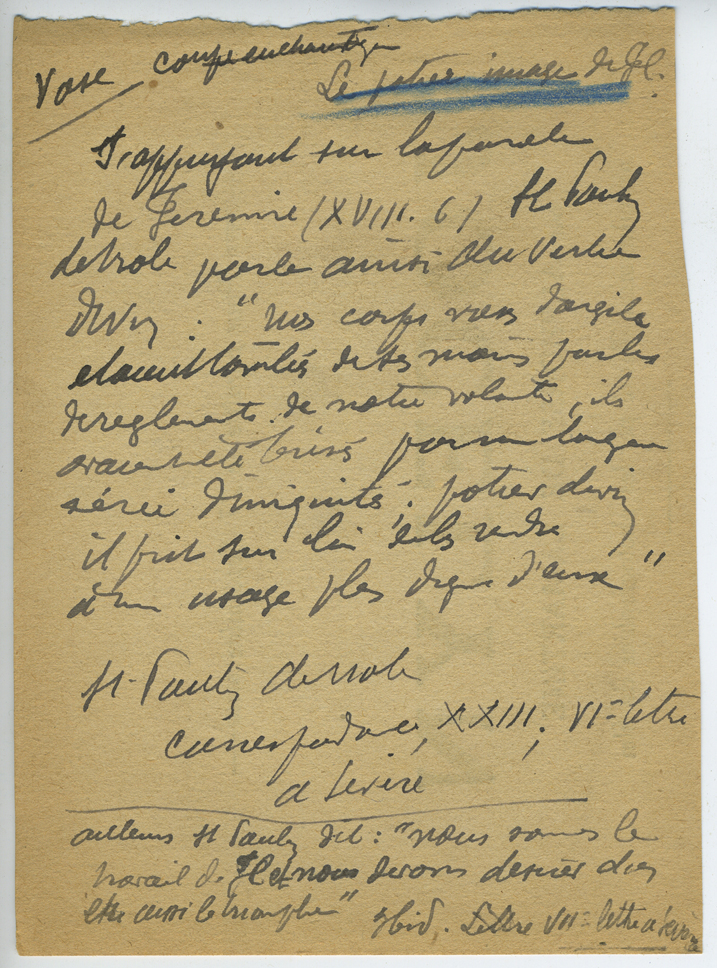 Vase coupe
Le potier image de J.C.
S'appuyant sur la parole
de Jeremie (XVIII. 6) St Paulin
de Nole parle ainsi du Verbe
Divin : " Nos corps vases d'argile
étaient tombés de ses mains par les
dereglements de notre volonté, ils
avaient été brisés par une longue
série d'iniquités, potier divin
il prit sur lui de les rendre
à un usage plus digne d'eux "
St Paulin de Nole
correspondance, XXIII, VIe lettre
a Sévère
ailleurs St Paulin dit : "nous sommes le
travail de J.C. et nous devons désirer d'en
être aussi le triomphe" Ibid. Lettre VII = lettre a Sévère